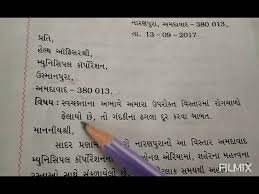 નારણપુરા, અમદાવાદ - 380 013.
તા. 13 - 09 - 2017.
પ્રતિ,
હેલ્થ ઑફિસરશ્રી,
મ્યુનિસિપલ કૉર્પોરેશન,
ઉસ્માનપુરા,
અમદાવાદ - 380013.
વિષય : સ્વચ્છતાના અભાવે અમારા ઉપરોક્ત વિસ્તારમાં રોગચાળો
ફેલાયો છે, તો ગંદકીના ઢગલા દૂર કરવા બાબત.
માનનીયશ્રી,
સાદર પ્રણામ નારણપુરાનો આ વિસ્તાર અમદાવાદ
મ્યુનિસિપલ કૉર્પોરેશન એરિયામાં, શહેરના મહત્ત્વના
FILMIX